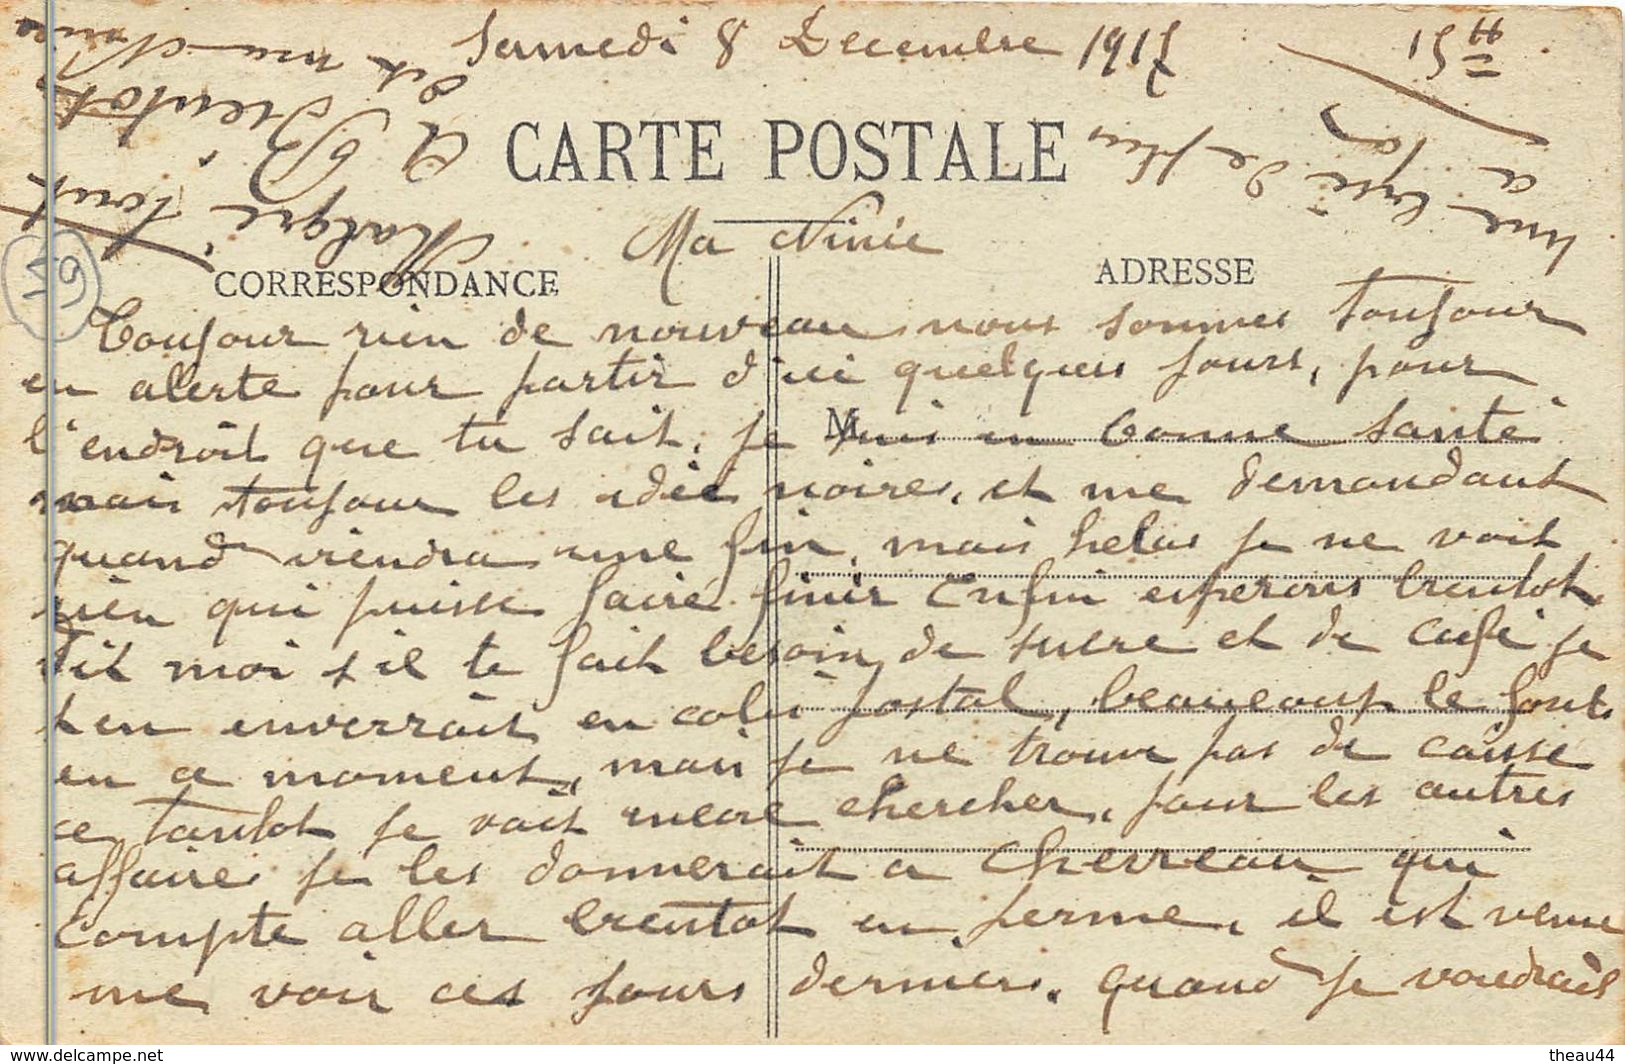 Samedi 8 Decembre 1917
15 H
CARTE POSTALE
Ma Ninie
CORRESPONDANCE
ADRESSE
Toujour rien de nouveau nous sommes toujour
en alerte pour partir d'ici quelques jours, pour
l'endroit que tu sait, je suis en bonne santé
M
mais toujour les idée noires, et me demandant
quand viendra une fin, mais helas je ne voit
rien qui puisse faire finir Enfin esperons bientot
dit moi s il te fait besoin, de sucre et de café je
t en enverrait en colis postal, beaucoup le font
en ce moment, mais je ne trouve pas de caisse
ce tantot je vait encore chercher, pour les autres
affaires je les donnerait a Cherreau qui
compte aller bientot en perme, il est venue
me voir ces jours derniers. quand je voudrait
Malgré tout
A Bientot
une bise de plus
a toi
19
www.delcampe.net
theau44